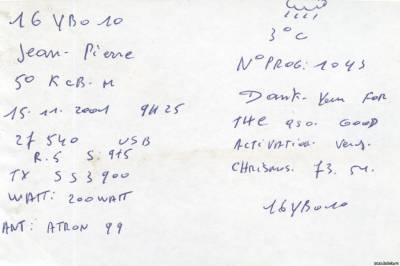 16 YB0 10
Jean-Pierre
50 KcB. M
15. 11. 2001 9H25
27 540 USB
R.5 S: 9+5
TX SS3900
WATT: 200WATT
ANT: ATRON 99
3°C
N° PROG: 1043
Dank. You FOR
THE QSO. GOOD
ACTIVATION
CHRISMUS. 73. 51.
16YB010